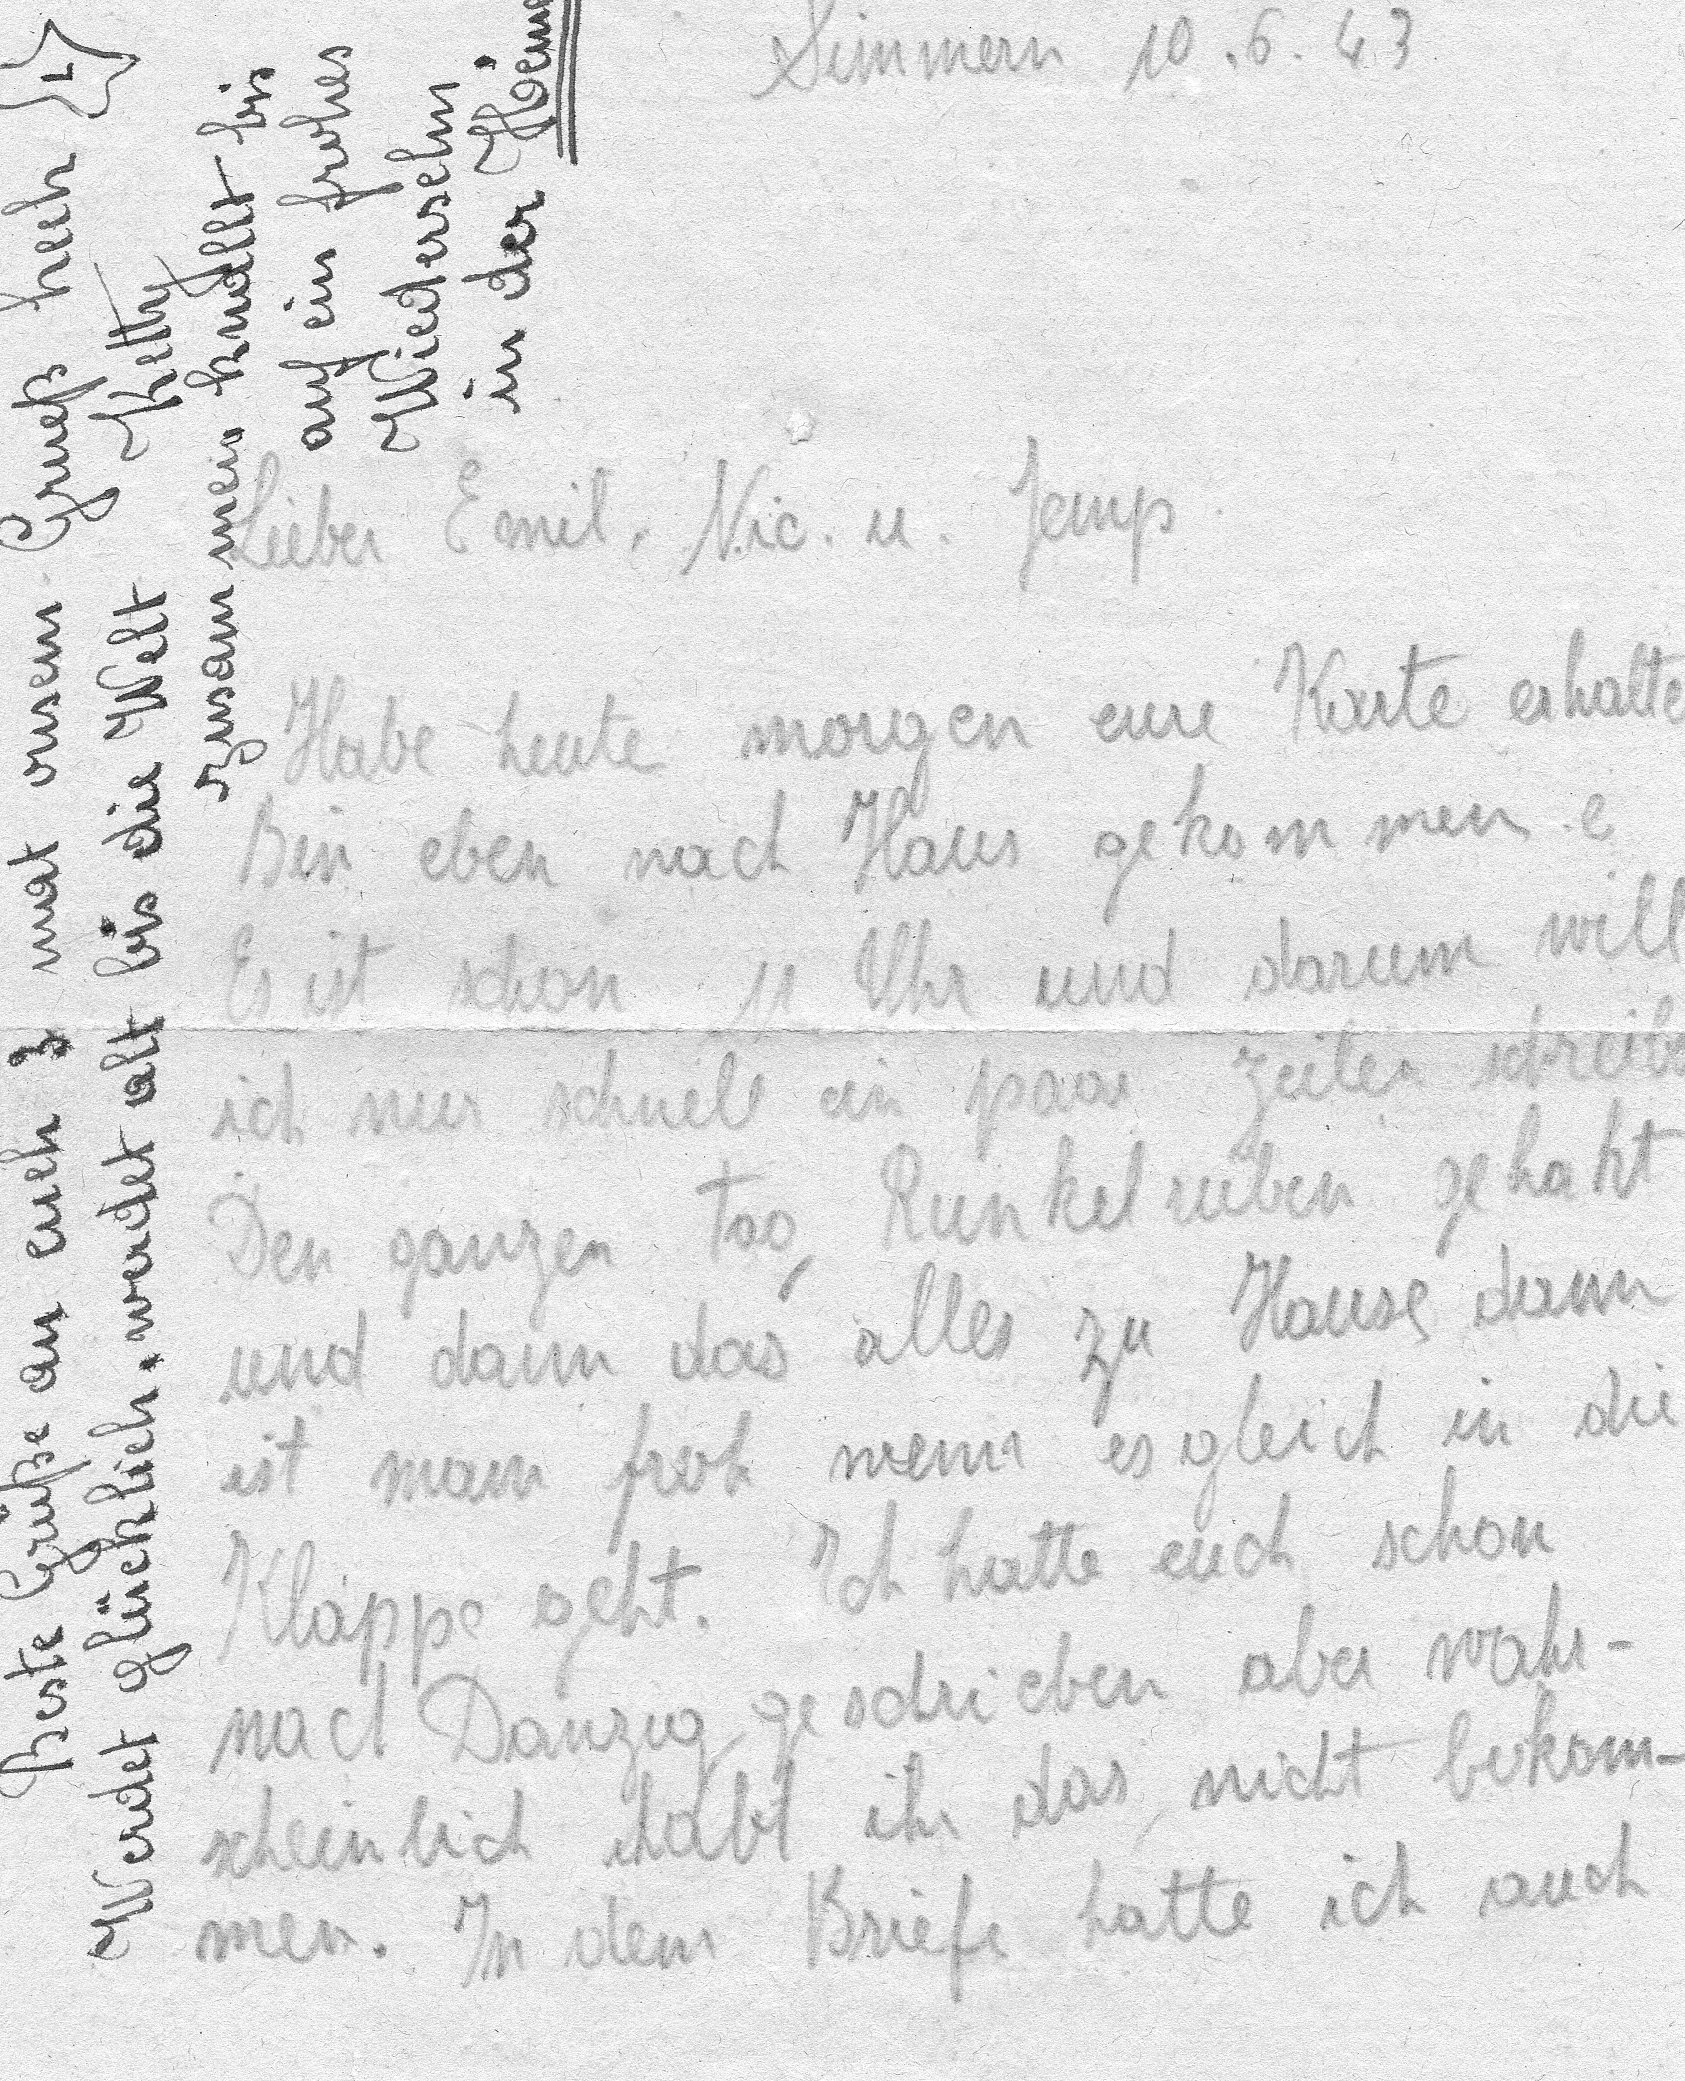 Simmern 10.6.43
Lieber Emil, Nic. u. Jemp.
Habe heute morgen eure Karte erhalte
Bin eben nach Haus gekommen e
Es ist schon 11 Uhr und darum will
ich nur schnell ein paar Zeilen schreibe
Den ganzen Tag Runkelrüben gehakt
und dann das alles zu Hause, dann
ist man froh wenn es gleich in die
Klappe geht. Ich hatte euch schon
nach Danzig geschrieben aber wahr-
scheinlich habt ihr das nicht bekom-
men. In dem Briefe hatte ich auch
Beste Grüße an euch 3 mat onsem Gruß heeh
L
Werdet glücklich, werdet alt bis die Welt
Ketty
zusammen knallt bis
auf ein frohes
Wiedersehn
in der Hoem